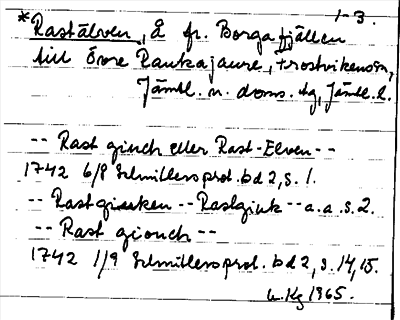 1-3.
*Rastälven, Å fr. Borgafjällen
till övre Rankajaure, Frostvikens sn,
Jämtl. n. doms. tg, Jämtl. l.
-- Rast giuch eller Rast-Elven --
1742 6/9 Schnitlers prot. bd 2, s. 1.
-- Rastgiuken -- Rastgiuk -- a.a. s. 2.
-- Rast giouch --
1742 1/9 Schnitlers prot. bd 2, s. 14, 15.
1965.